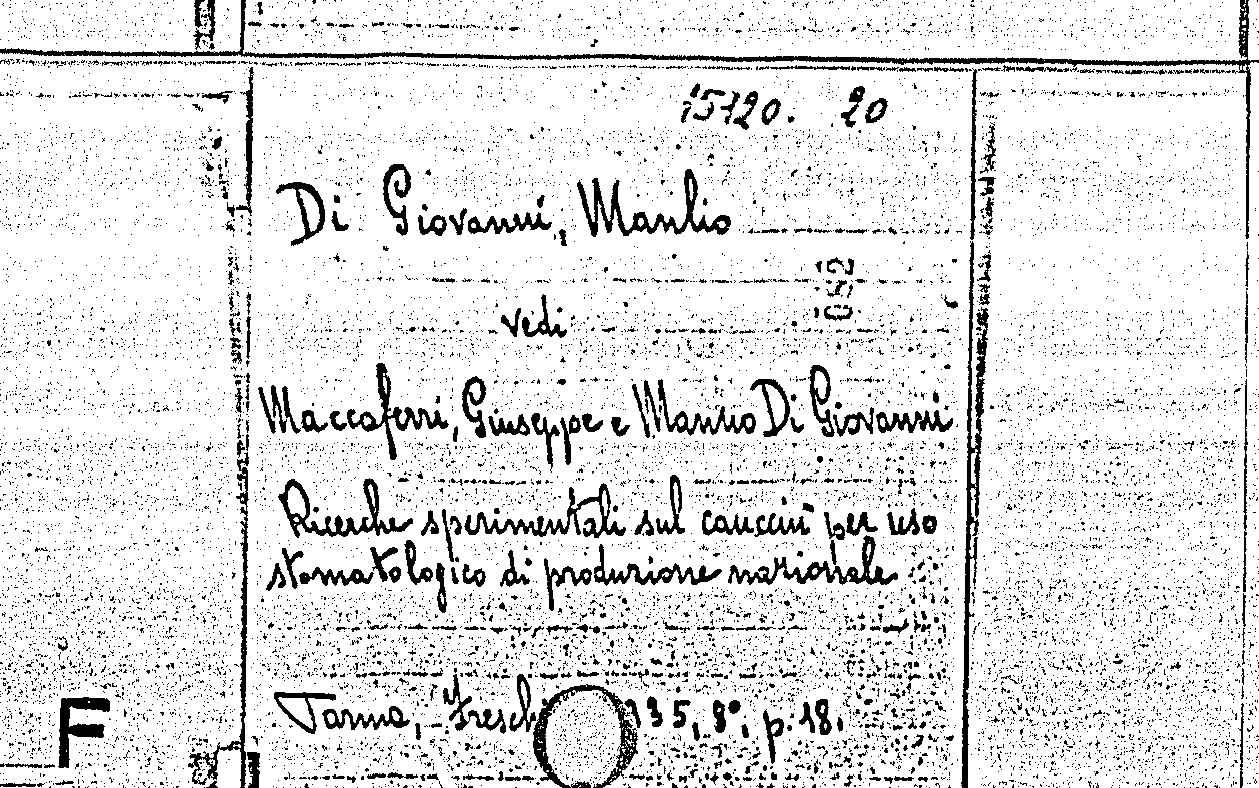 15120. 20
Di Giovanni, Manlio
052
vedi
Maccaferri, Giuseppe e Manlio Di Giovanni
Ricerche sperimentali sul caucciù per uso
stomatologico di produzione nazionale
Parma, Fresch 935, 8°, p. 18.
F